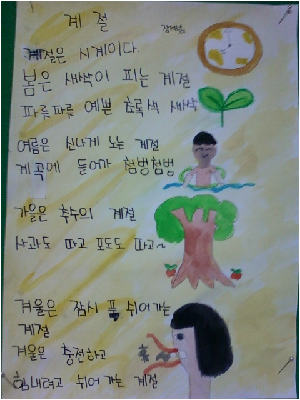 계절
계절은 시계이다.
봄은 새싹이 피는 계절
파릇파릇 예쁜 초록색 새싹
여름은 신나게 노는 계절
계곡에 들어가 첨벙첨벙
가을은 추수의 계절
사과도 따고 포도도 따고~
겨울은 잠시 푹 쉬어가는
계절
겨울은 충전하고
힘내려고 쉬어가는 계절